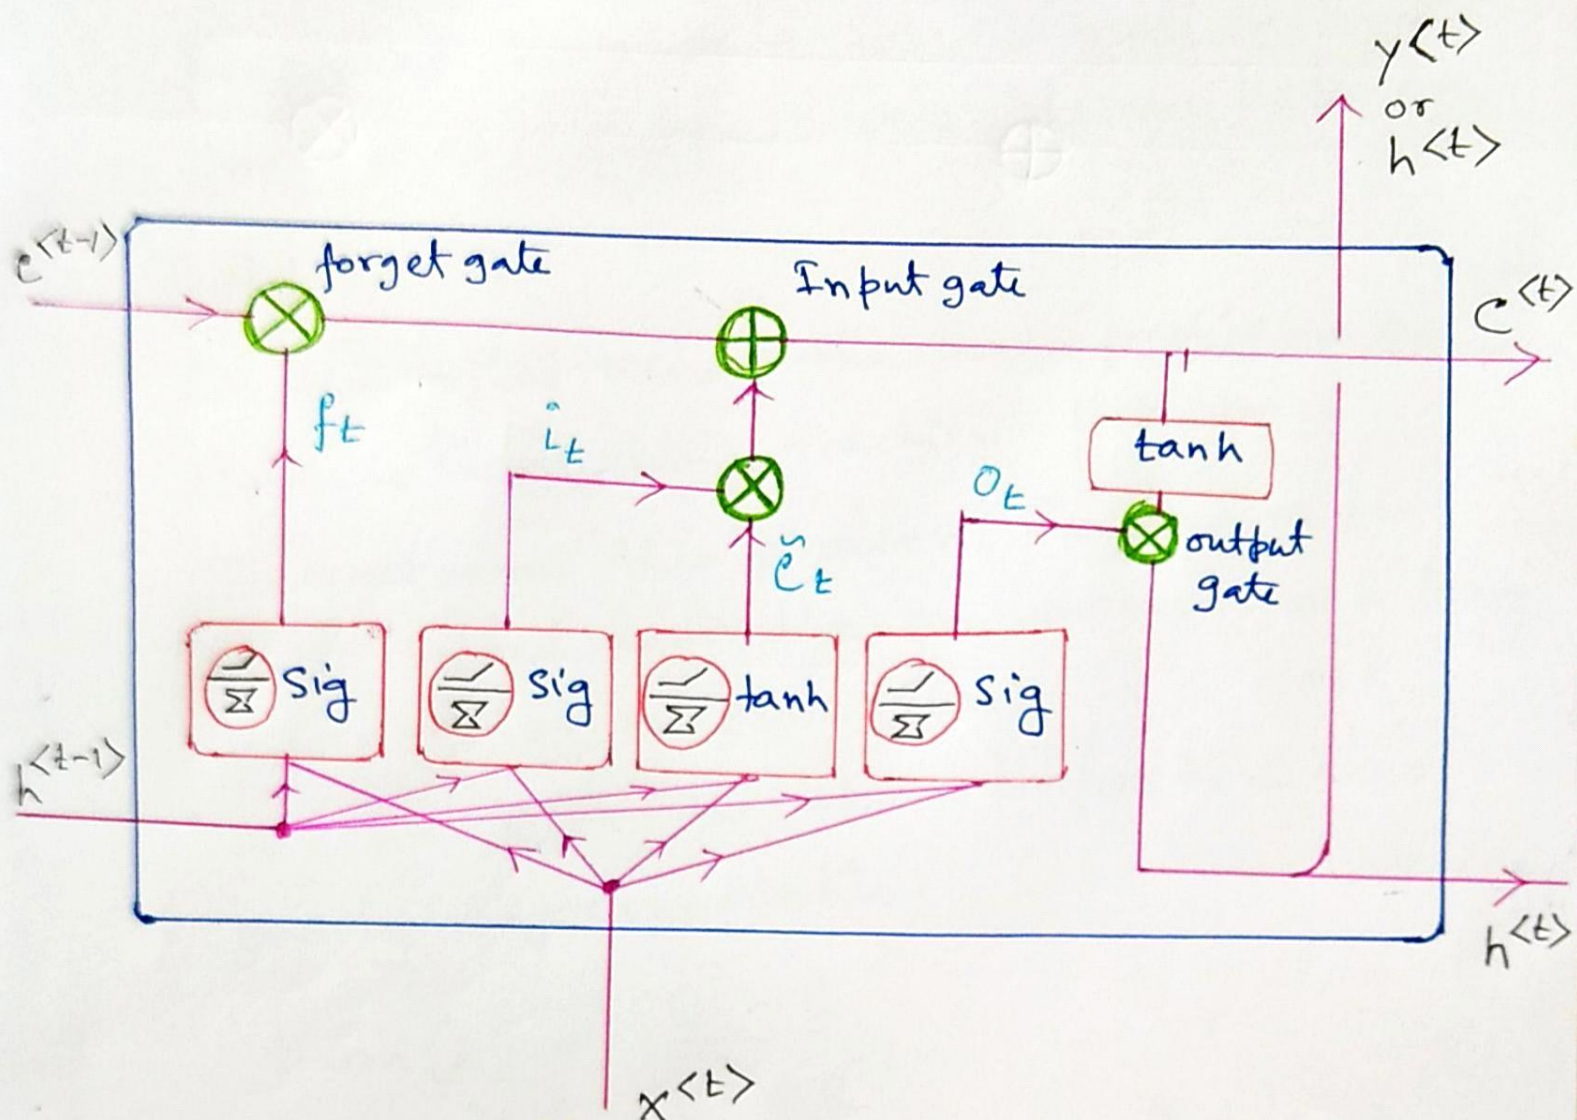 y<t>
or
h<t>
c<t-1>
forget gate
Input gate
c<t>
ft
it
tanh
ot
output
gate
c̃t
Σ Sig
Σ Sig
Σ tanh
Σ Sig
h<t-1>
h<t>
x<t>